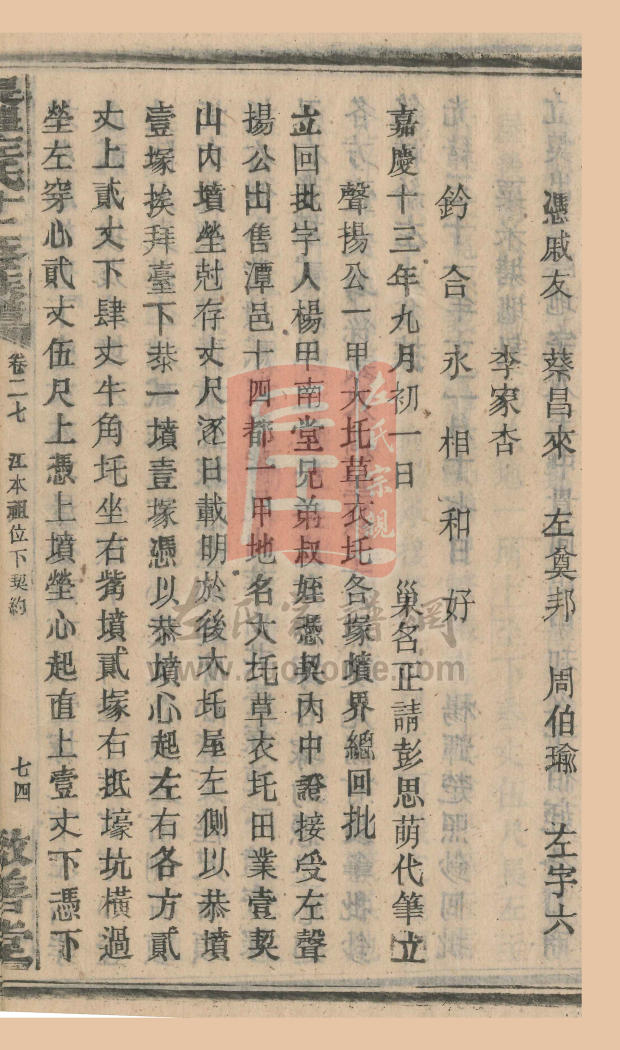 憑戚友　蔡昌來　左奠邦　周伯瑜　左字六
李家杏
鈐合永相和好
嘉慶十三年九月初一日　巢名正請彭思萌代筆立
聲揚公一甲大圫草衣圫各塚墳界總回批
立回批字人楊甲南堂兄弟叔姪憑契內中證接受左聲
揚公出售潭邑十四都一甲地名大圫草衣圫田業壹契
山內墳塋尅存丈尺逐日載明於後大圫屋左側以恭墳
壹塚挨拜臺下恭一墳壹塚憑以恭墳心起左右各方貳
丈上貳丈下肆丈牛角圫坐右觜墳貳塚右抵壕坑橫過
塋左穿心貳丈伍尺上憑上墳塋心起直上壹丈下憑下
卷二七　江本祖位下契約
七四
敦善堂
www.zuohome.com